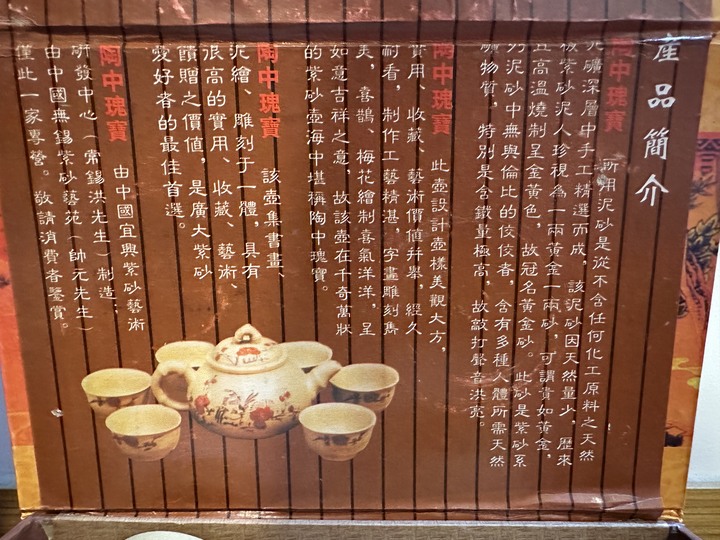 產品簡介
陶中瑰寶 所用泥砂是從不含任何化工原料之天然
泥礦深層中手工精選而成，該泥砂因天然量少，歷來
被紫砂泥人珍視為一兩黃金一兩砂，可謂貴如黃金，
且高溫燒制呈金黃色，故冠名黃金砂。此砂是紫砂系
列泥砂中無與倫比的佼佼者，含有多種人體所需天然
礦物質，特別是含鐵量極高，故敲打聲音洪亮。
陶中瑰寶 此壺設計壺樣美觀大方，
實用、收藏、藝術價值并舉，經久
耐看，制作工藝精湛，字畫雕刻雋
美，喜鵲、梅花繪制喜氣洋洋，呈
如意吉祥之意，故該壺在千奇萬狀
的紫砂壺海中堪稱陶中瑰寶。
陶中瑰寶 該壺集書畫、
泥繪、雕刻于一體，具有
很高的實用、收藏、藝術、
饋贈之價值，是廣大紫砂
愛好者的最佳首選。
陶中瑰寶 由中國宜興紫砂藝術
研發中心（常錫洪先生）制造；
由中國無錫紫砂藝苑（帥元先生）
僅此一家專營。敬請消費者鑒賞。